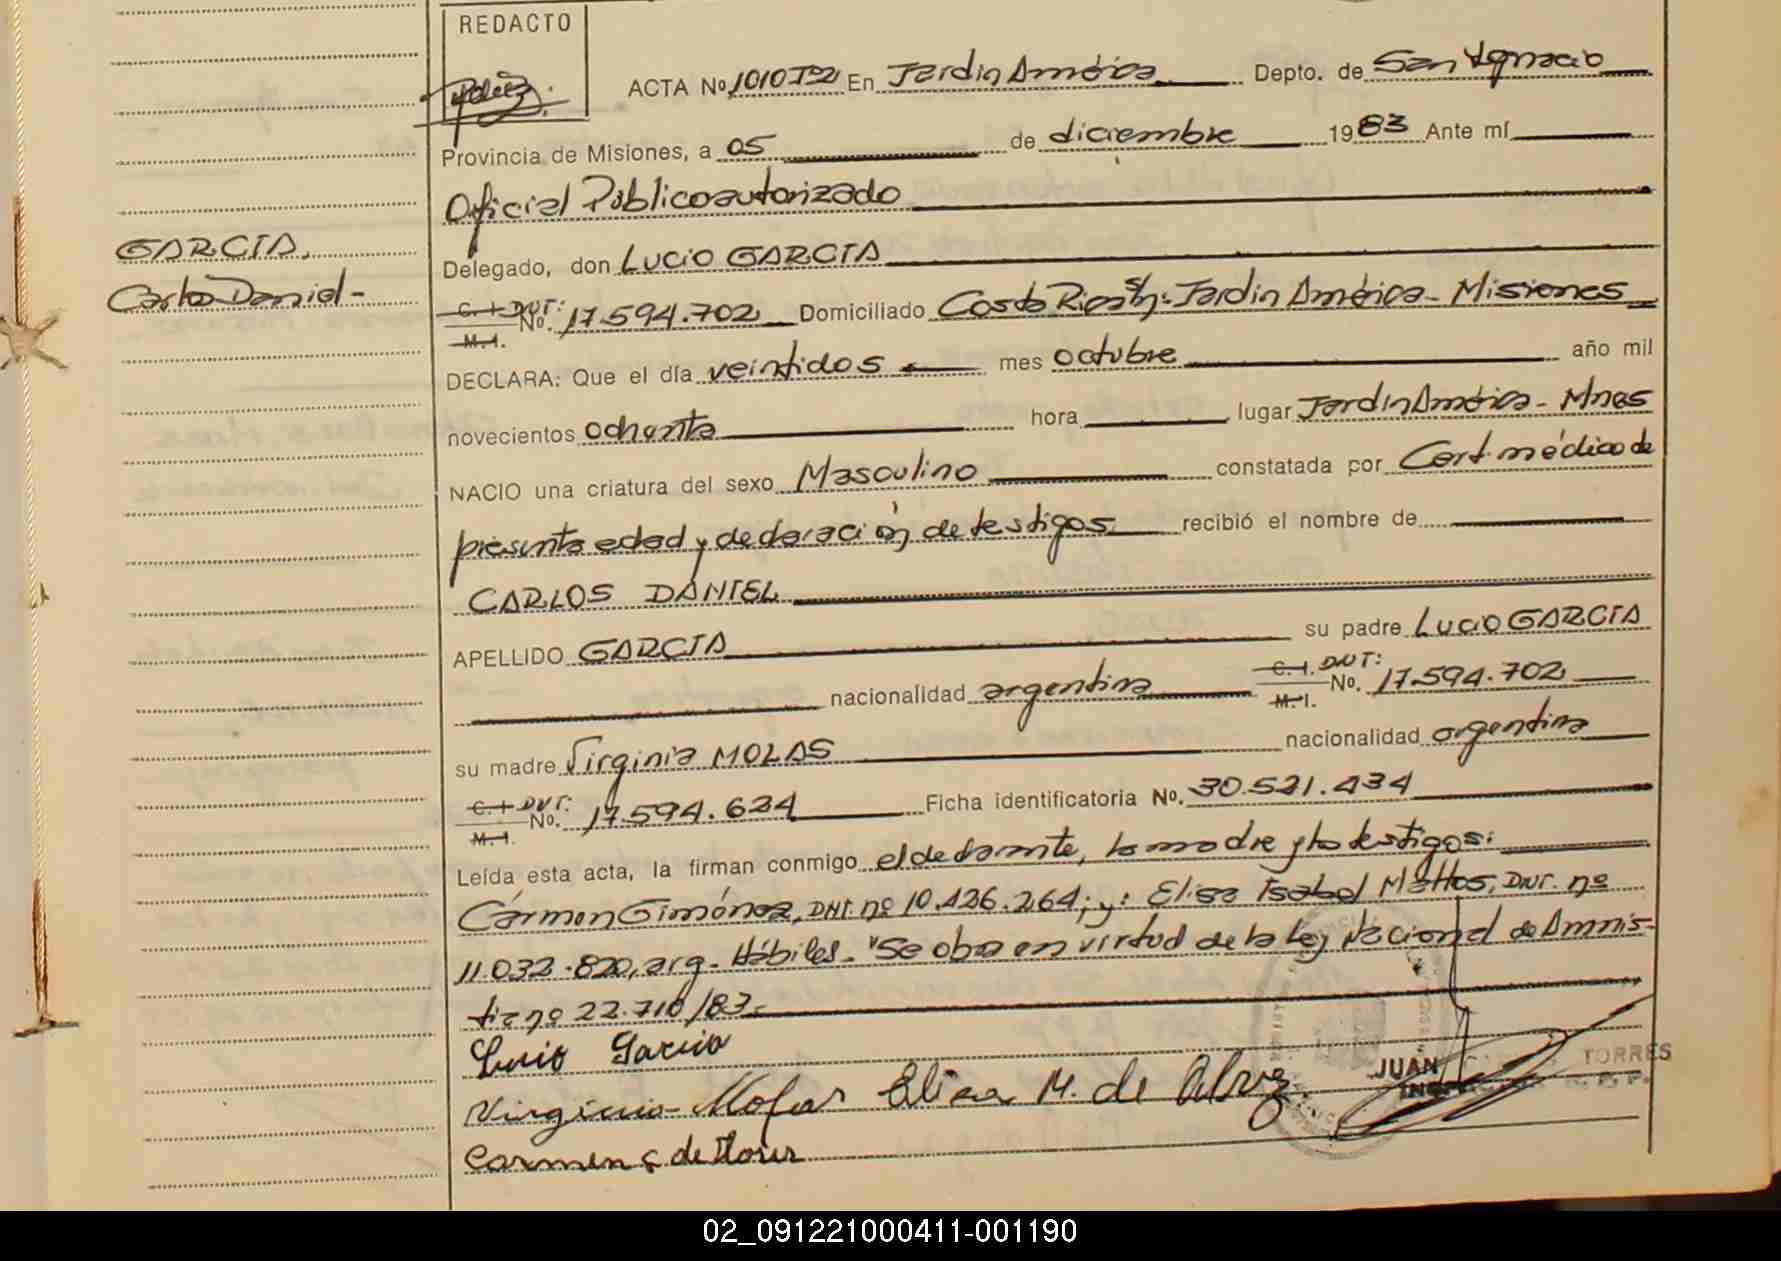 REDACTO
ACTA No 1010 T2 En Jardin América Depto. de San Ignacio
Provincia de Misiones, a 05 de diciembre 1983 Ante mí
Oficial Público autorizado
GARCIA,
Delegado, don Lucio GARCIA
Carlos Daniel-
C. I. DNI: M. I. No. 17.594.702 Domiciliado Costa Rica s/n: Jardin América - Misiones
DECLARA: Que el día veintidos mes octubre año mil
novecientos ochenta hora lugar Jardin América - Mnes
NACIO una criatura del sexo Masculino constatada por Cert. médico de
presunta edad y declaración de testigos recibió el nombre de
CARLOS DANIEL
APELLIDO GARCIA su padre Lucio GARCIA
nacionalidad argentina C. I. DNI: M. I. No. 17.594.702
su madre Virginia MOLAS nacionalidad argentina
C. I. DNI: M. I. No. 17.594.624 Ficha identificatoria No. 30.521.434
Leída esta acta, la firman conmigo el declarante, la madre y los testigos:
Cármen Giménez, DNI. nº 10.426.264; y: Elisa Isabel Mattos, DNI. nº
11.032.820, arg. Hábiles. "Se obra en virtud de la Ley Nacional de Amnis-
tia nº 22.710/83.-
Lucio Garcia
Virginia Molas Elisa M. de
Carmen G de
JUAN TORRES
02_091221000411-001190